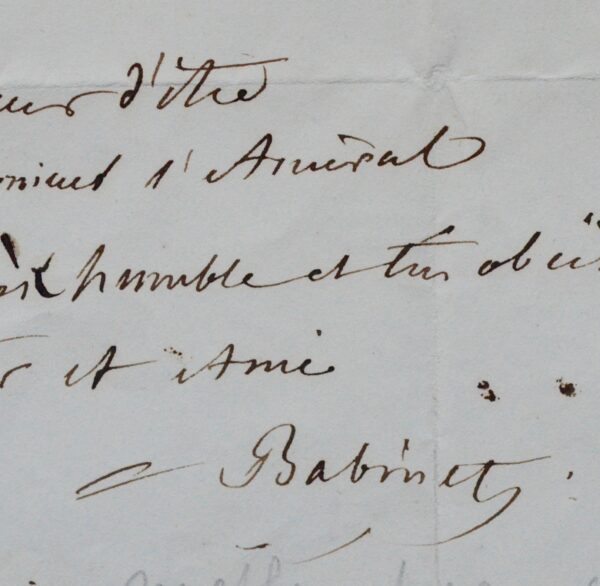 eur d'être
onsieur l'Amiral
très humble et très obéis
r et Ami
Babinet.